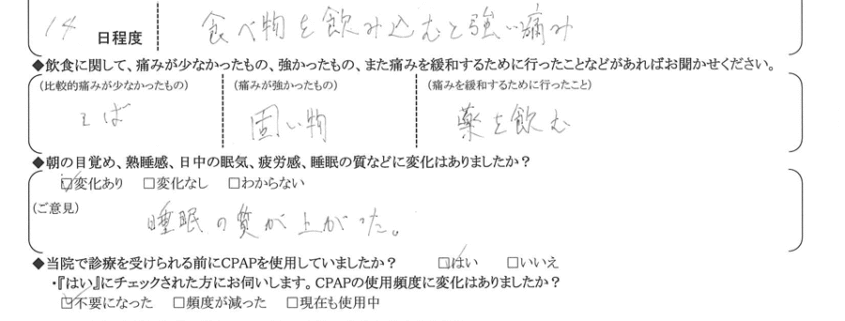 14 日程度 食べ物を飲み込むと強い痛み
◆飲食に関して、痛みが少なかったもの、強かったもの、また痛みを緩和するために行ったことなどがあればお聞かせください。
(比較的痛みが少なかったもの) (痛みが強かったもの) (痛みを緩和するために行ったこと)
そば 固い物 薬を飲む
◆朝の目覚め、熟睡感、日中の眠気、疲労感、睡眠の質などに変化はありましたか？
☑変化あり □変化なし □わからない
(ご意見)
睡眠の質が上がった。
◆当院で診療を受けられる前にCPAPを使用していましたか？ ☑はい □いいえ
・『はい』にチェックされた方にお伺いします。CPAPの使用頻度に変化はありましたか？
☑不要になった □頻度が減った □現在も使用中